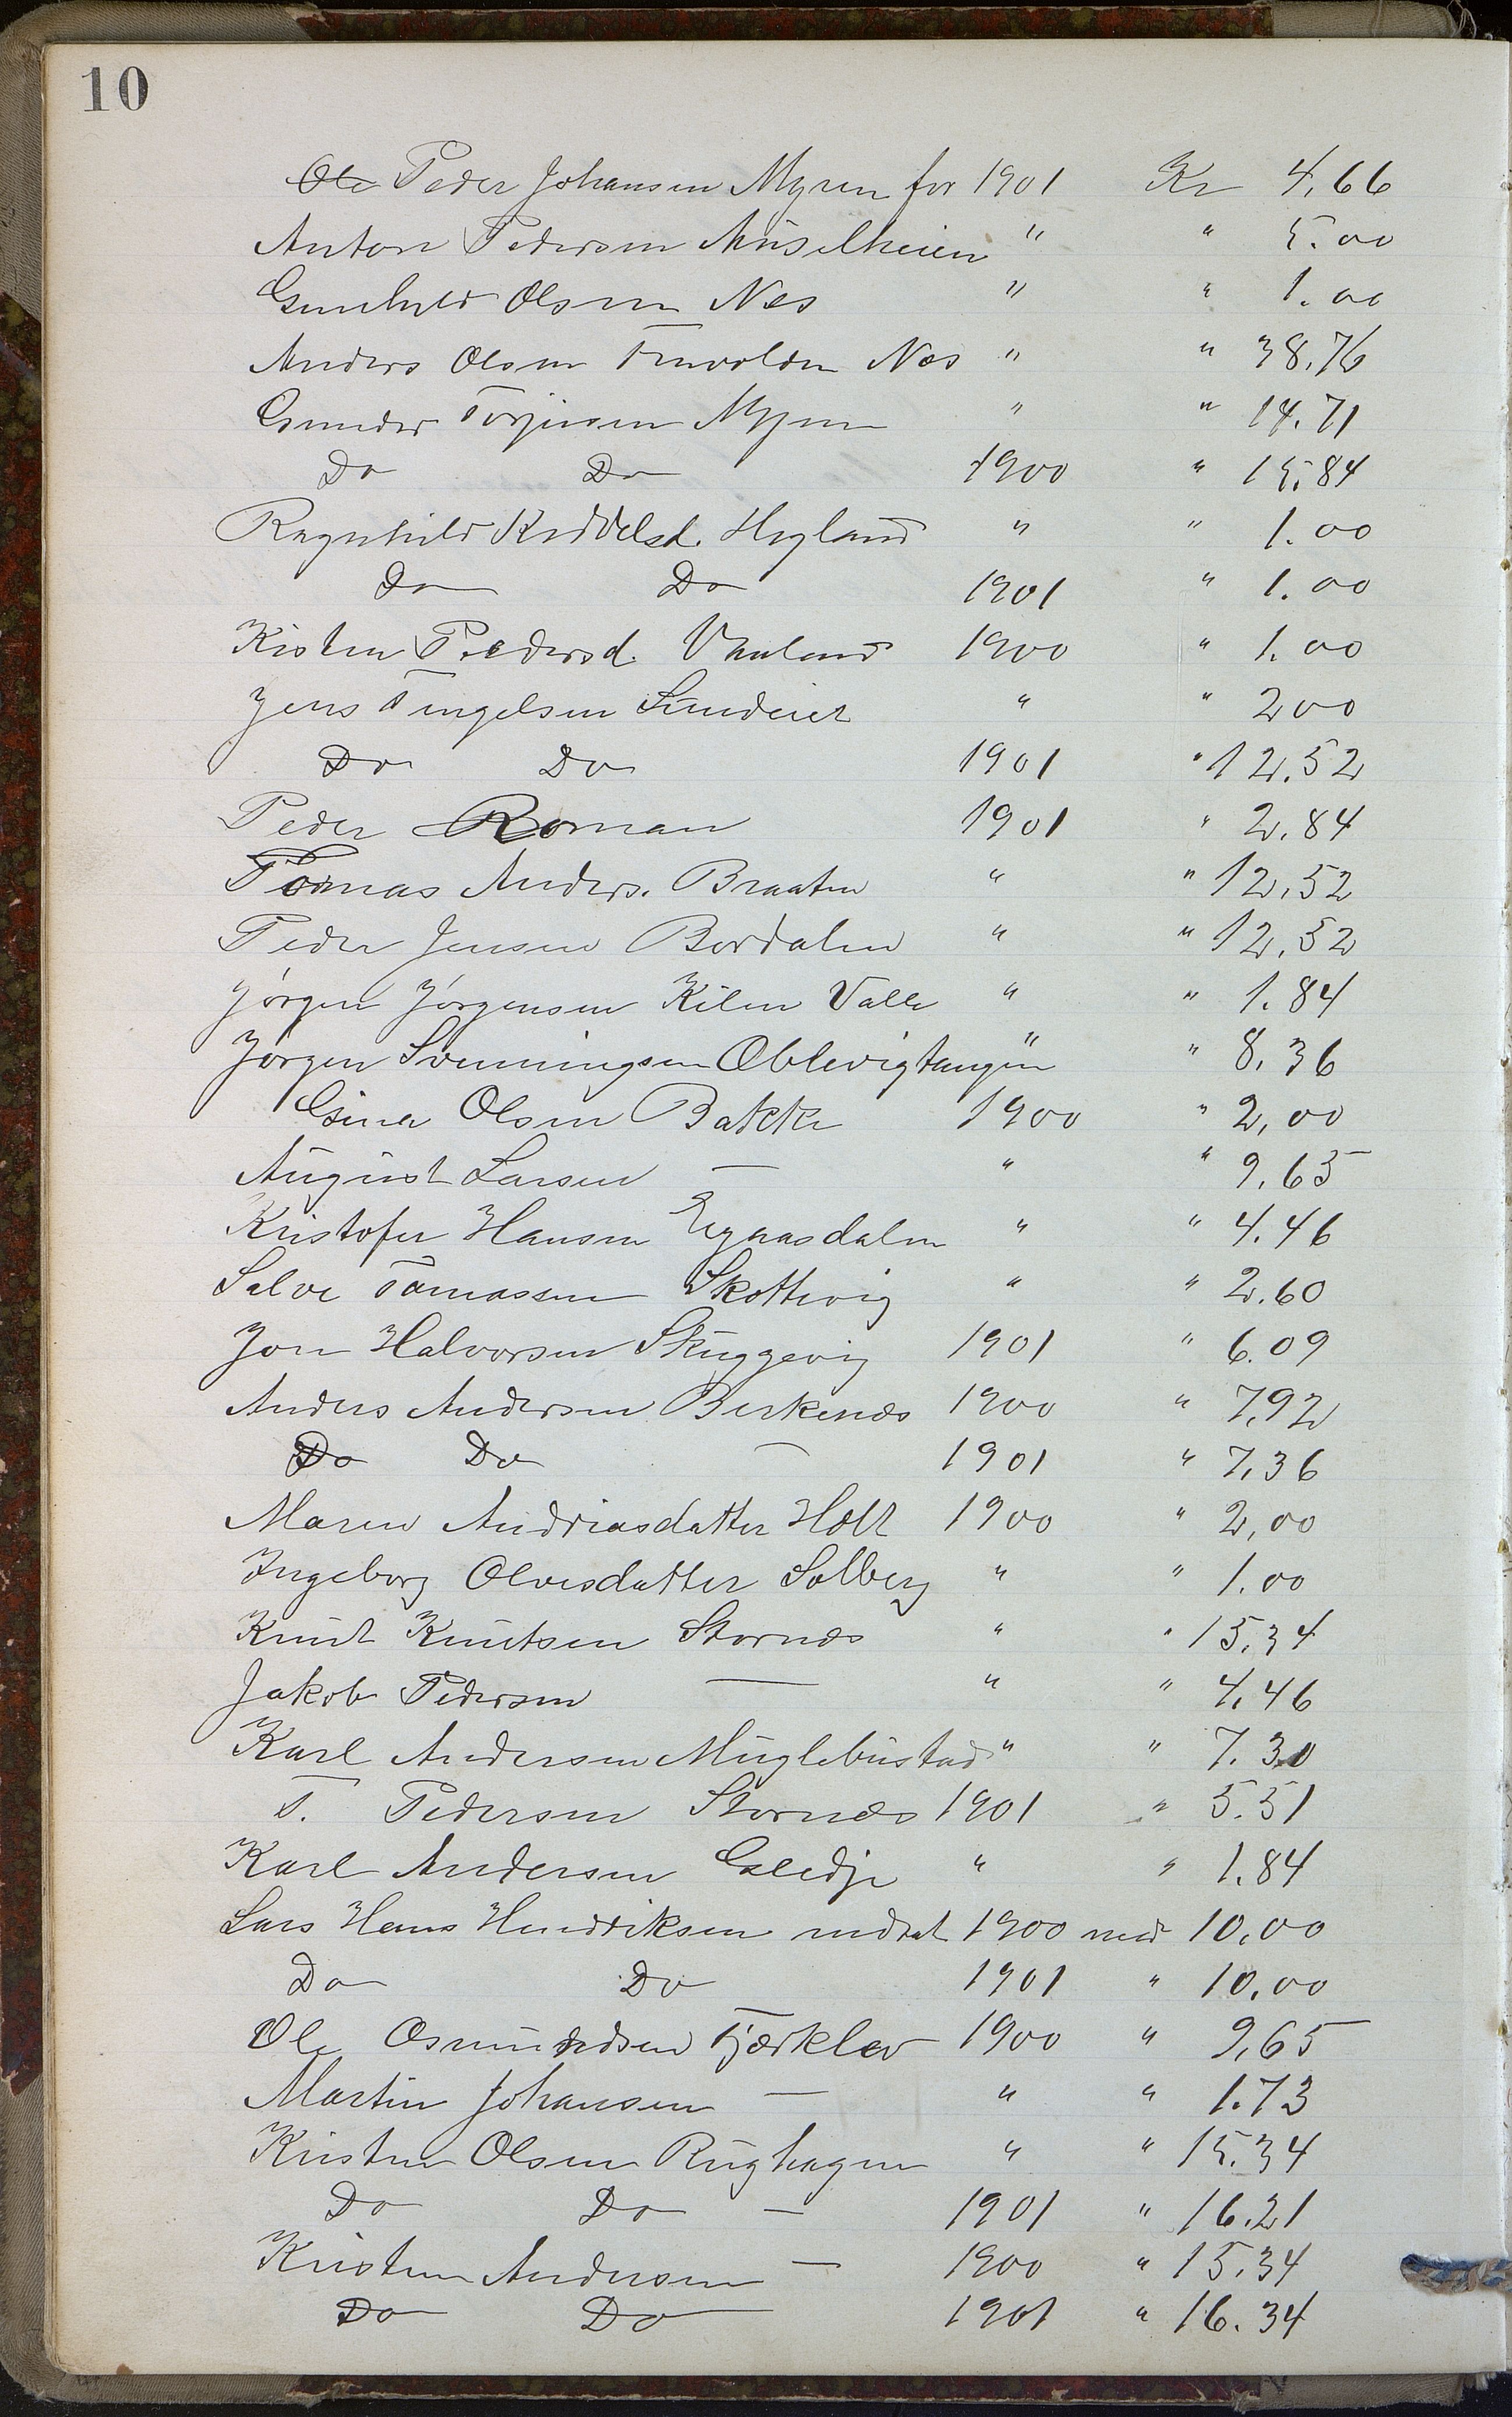 10
Ole Peder Johansen Myren for 1901 Kr 4,66
Anton Pedersen Muselheien " " 5.00
Gunhild Olsen Nes " " 1.00
Anders Olsen Nes " " 38,76
Gunder Torjusen Myren " " 14.71
Do Do 1900 " 15,84
Ragnhild Kiddelsd. Hegland " " 1.00
Do Do 1901 " 1.00
Kisten Pedersd. Vaaland 1900 " 1.00
Jens Tingelsen Sundeiet " " 200
Do Do 1901 " 12.52
Peder Roman 1901 " 2.84
Tomas Anders. Braaten " " 12,52
Peder Jensen Bordalen " " 12,52
Jørgen Jørgensen Kilen Valle " " 1.84
Jørgen Svenningsen Oblevigtangen " " 8,36
Gina Olsen Bakke 1900 " 2,00
August Larsen — " " 9,65
Kristofer Hansen Eegaasdalen " " 4.46
Salve Tomassen Skottevig " " 2.60
Jon Halvorsen Skuggevig 1901 " 6.09
Anders Andersen Birkenes 1900 " 7,92
Do Do — 1901 " 7,36
Maren Andriasdatter Holt 1900 " 2,00
Ingeborg Olvesdatter Solberg " " 1.00
Knut Knutsen Stornes " " 15,34
Jakob Pedersen — " " 4,46
Karl Andersen Muglebustad " " 7.30
T. Pedersen Stornes 1901 " 5.51
Karl Andersen Gledje " " 1.84
Lars Hans Hendriksen nedsat 1900 med 10,00
Do Do 1901 " 10,00
Ole Osmundsen Tjærklev 1900 " 9,65
Martin Johansen — " " 1.73
Kristen Olsen Rughagen " " 15.34
Do Do — 1901 " 16.21
Kristen Andersen — 1900 " 15,34
Do Do 1901 " 16.34